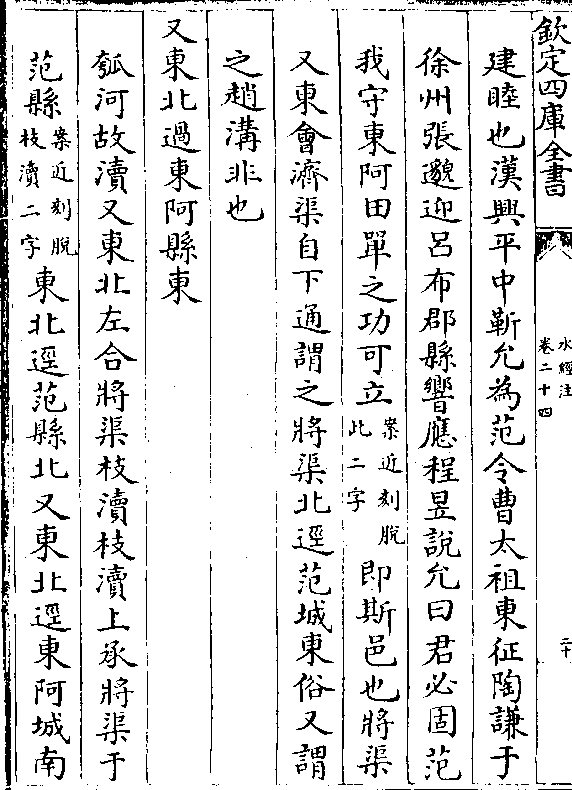 欽定四庫全書
水經注
卷二十四
二十
建睦也漢興平中靳允為范令曹太祖東征陶謙于
徐州張邈迎呂布郡縣響應程昱說允曰君必固范
我守東阿田單之功可立案近刻脫此二字即斯邑也將渠
又東會濟渠自下通謂之將渠北逕范城東俗又謂
之趙溝非也
又東北過東阿縣東
瓠河故瀆又東北左合將渠枝瀆枝瀆上承將渠于
范縣案近刻脫枝瀆二字東北逕范縣北又東北逕東阿城南